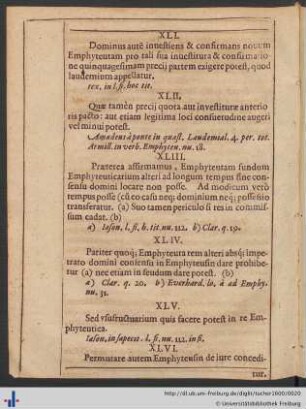 XLI.
Dominus autē inuestiens & confirmans nouum
Emphyteutam pro tali sua inuestitura & confirmatio-
ne quinquagesimam precii partem exigere potest, quod
laudemium appellatur.
tex. in l. fi. hoc tit.
XLII.
Quæ tamen precij quota aut inuestituræ anterio
ris pacto: aut etiam legitima loci consuetudine augeri
vel minui potest.
Amadeus à ponte in quæst. Laudemial. 4. per tot.
Armill. in verb. Emphyteu. nu. 18.
XLIII.
Præterea affirmamus, Emphyteutam fundum
Emphyteuticarium alteri ad longum tempus sine con-
sensu domini locare non posse. Ad modicum verò
tempus posse (cū eo casu neq; dominium neq; possessio
transferatur. (a) Suo tamen periculo si res in commis-
sum cadat. (b)
a) Iason, l. fi. h. tit. nu. 112. b) Clar. q. 19.
XLIV.
Pariter quoq; Emphyteuta rem alteri absq; impe-
trato domini consensu in Emphyteusin dare prohibe-
tur (a) nec etiam in feudum dare potest. (b)
a) Clar. q. 20. b) Euerhard. lo. à ad Emphy.
nu. 31.
XLV.
Sed vsufructuarium quis facere potest in re Em-
phyteutica.
Iason, in supra cit. l. fi. nu. 112. in fi.
XLVI.
Permutare autem Emphyteusin de iure concedi-
tur.
http://dl.ub.uni-freiburg.de/diglit/tucher1600/0020
© Universitätsbibliothek Freiburg